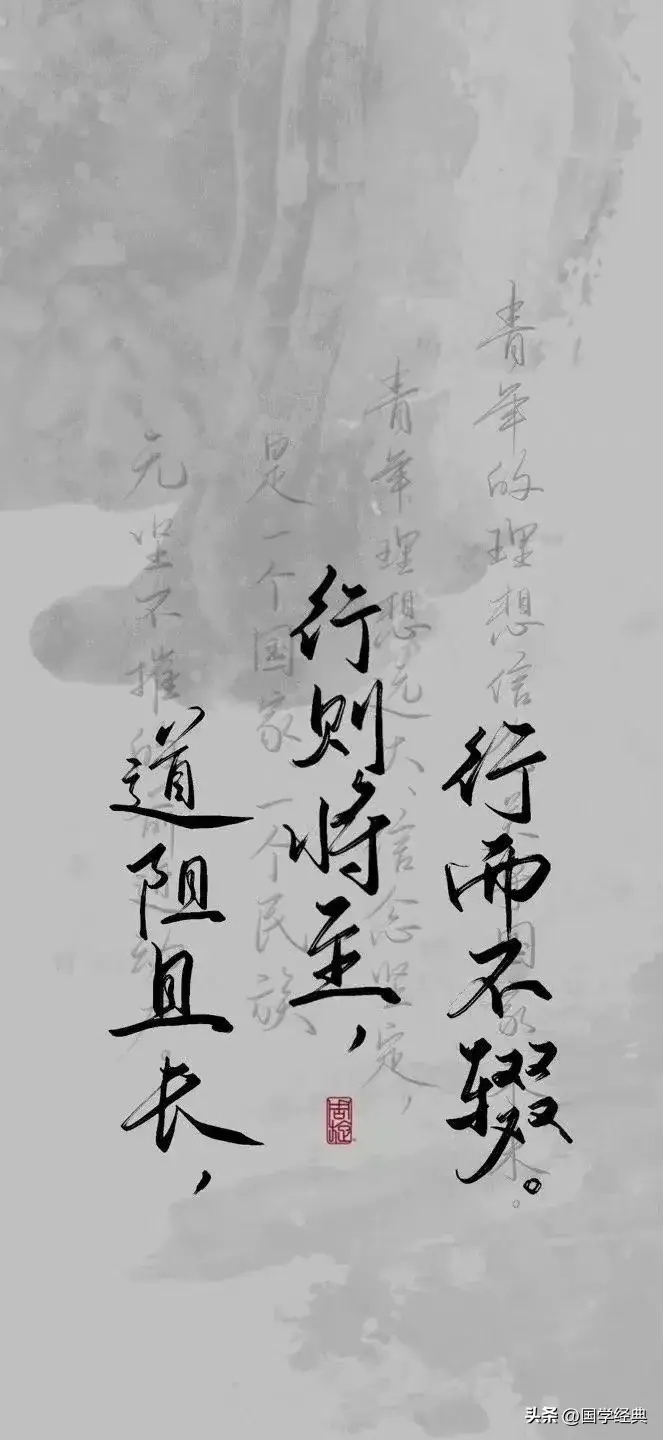 道阻且长，
行则将至，
行而不辍。
青年的理想信国家未来。
青年理想远大、信念坚定，
是一个国家 一个民族
无坚不摧前进
头条 @国学经典